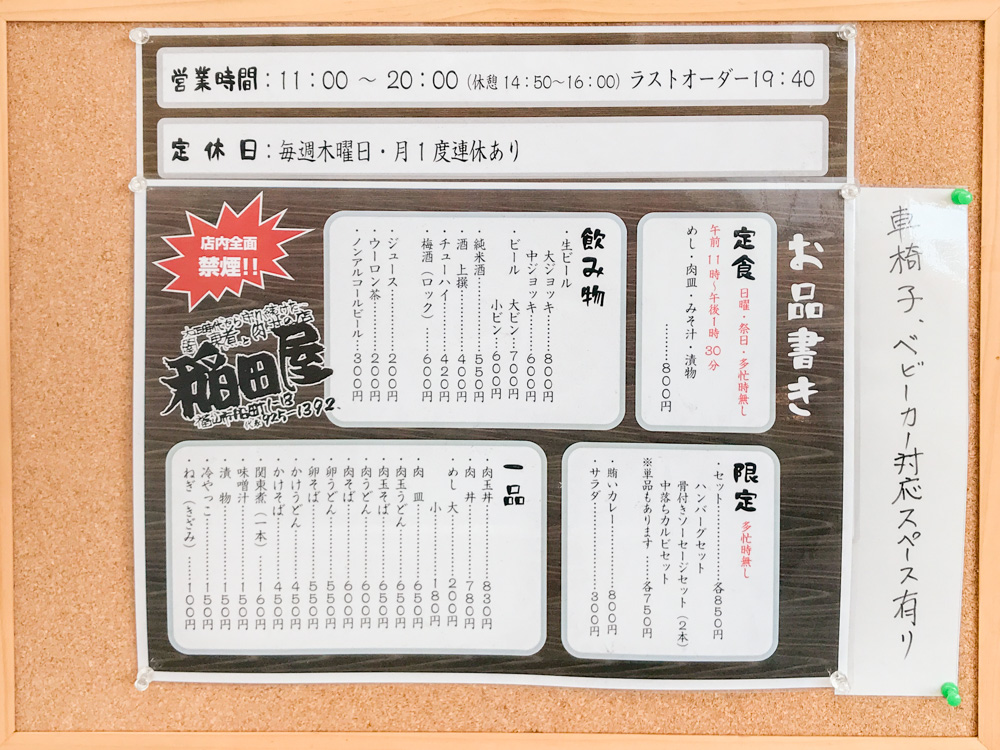 営業時間：11：00 ～ 20：00（休憩 14：50～16：00）ラストオーダー19：40
定休日：毎週木曜日・月１度連休あり
お品書き
定食 日曜・祭日・多忙時無し
午前 11 時～午後1 時 30 分
めし・肉皿・みそ汁・漬物
…………８００円
飲み物
・生ビール
大ジョッキ……８００円
中ジョッキ……６００円
・ビール 大ビン…７００円
小ビン…６００円
・純米酒…………５５０円
・酒 上撰…………４５０円
・チューハイ……４２０円
・梅酒（ロック）…６００円
・ジュース………２００円
・ウーロン茶……２００円
・ノンアルコールビール…３００円
店内全面
禁煙!!
稲田屋
925-1392
限定 多忙時無し
・セット…………各８５０円
ハンバーグセット
骨付きソーセージセット（２本）
中落ちカルビセット
※単品もあります……各７５０円
・賄いカレー…………８００円
・サラダ………………３００円
一品
・肉玉丼……………８３０円
・肉 丼……………７８０円
・めし 大…………２００円
小…………１８０円
・肉 皿……………６００円
・肉玉うどん………６５０円
・肉玉そば…………６５０円
・肉うどん…………６００円
・肉そば……………６００円
・卵うどん…………５５０円
・卵そば……………５５０円
・かけうどん………４５０円
・かけそば…………４５０円
・関東煮（一本）…１６０円
・味噌汁……………１５０円
・漬 物……………１５０円
・冷やっこ…………１５０円
・ねぎ（きざみ）…１００円
車椅子、ベビーカー対応スペース有り